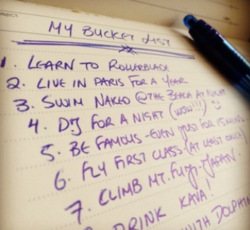 MY BUCKET LIST
1. LEARN TO ROLLERBLADE
2. LIVE IN PARIS FOR A YEAR
3. SWIM NAKED @ THE BEACH AT NIGHT
4. DJ FOR A NIGHT (WOW!!!)
5. BE FAMOUS - EVEN JUST FOR
6. FLY FIRST CLASS (AT LEAST ONCE)
7. CLIMB MT. FUJI - JAPAN
DRINK KAVA!
WITH DOLPHIN